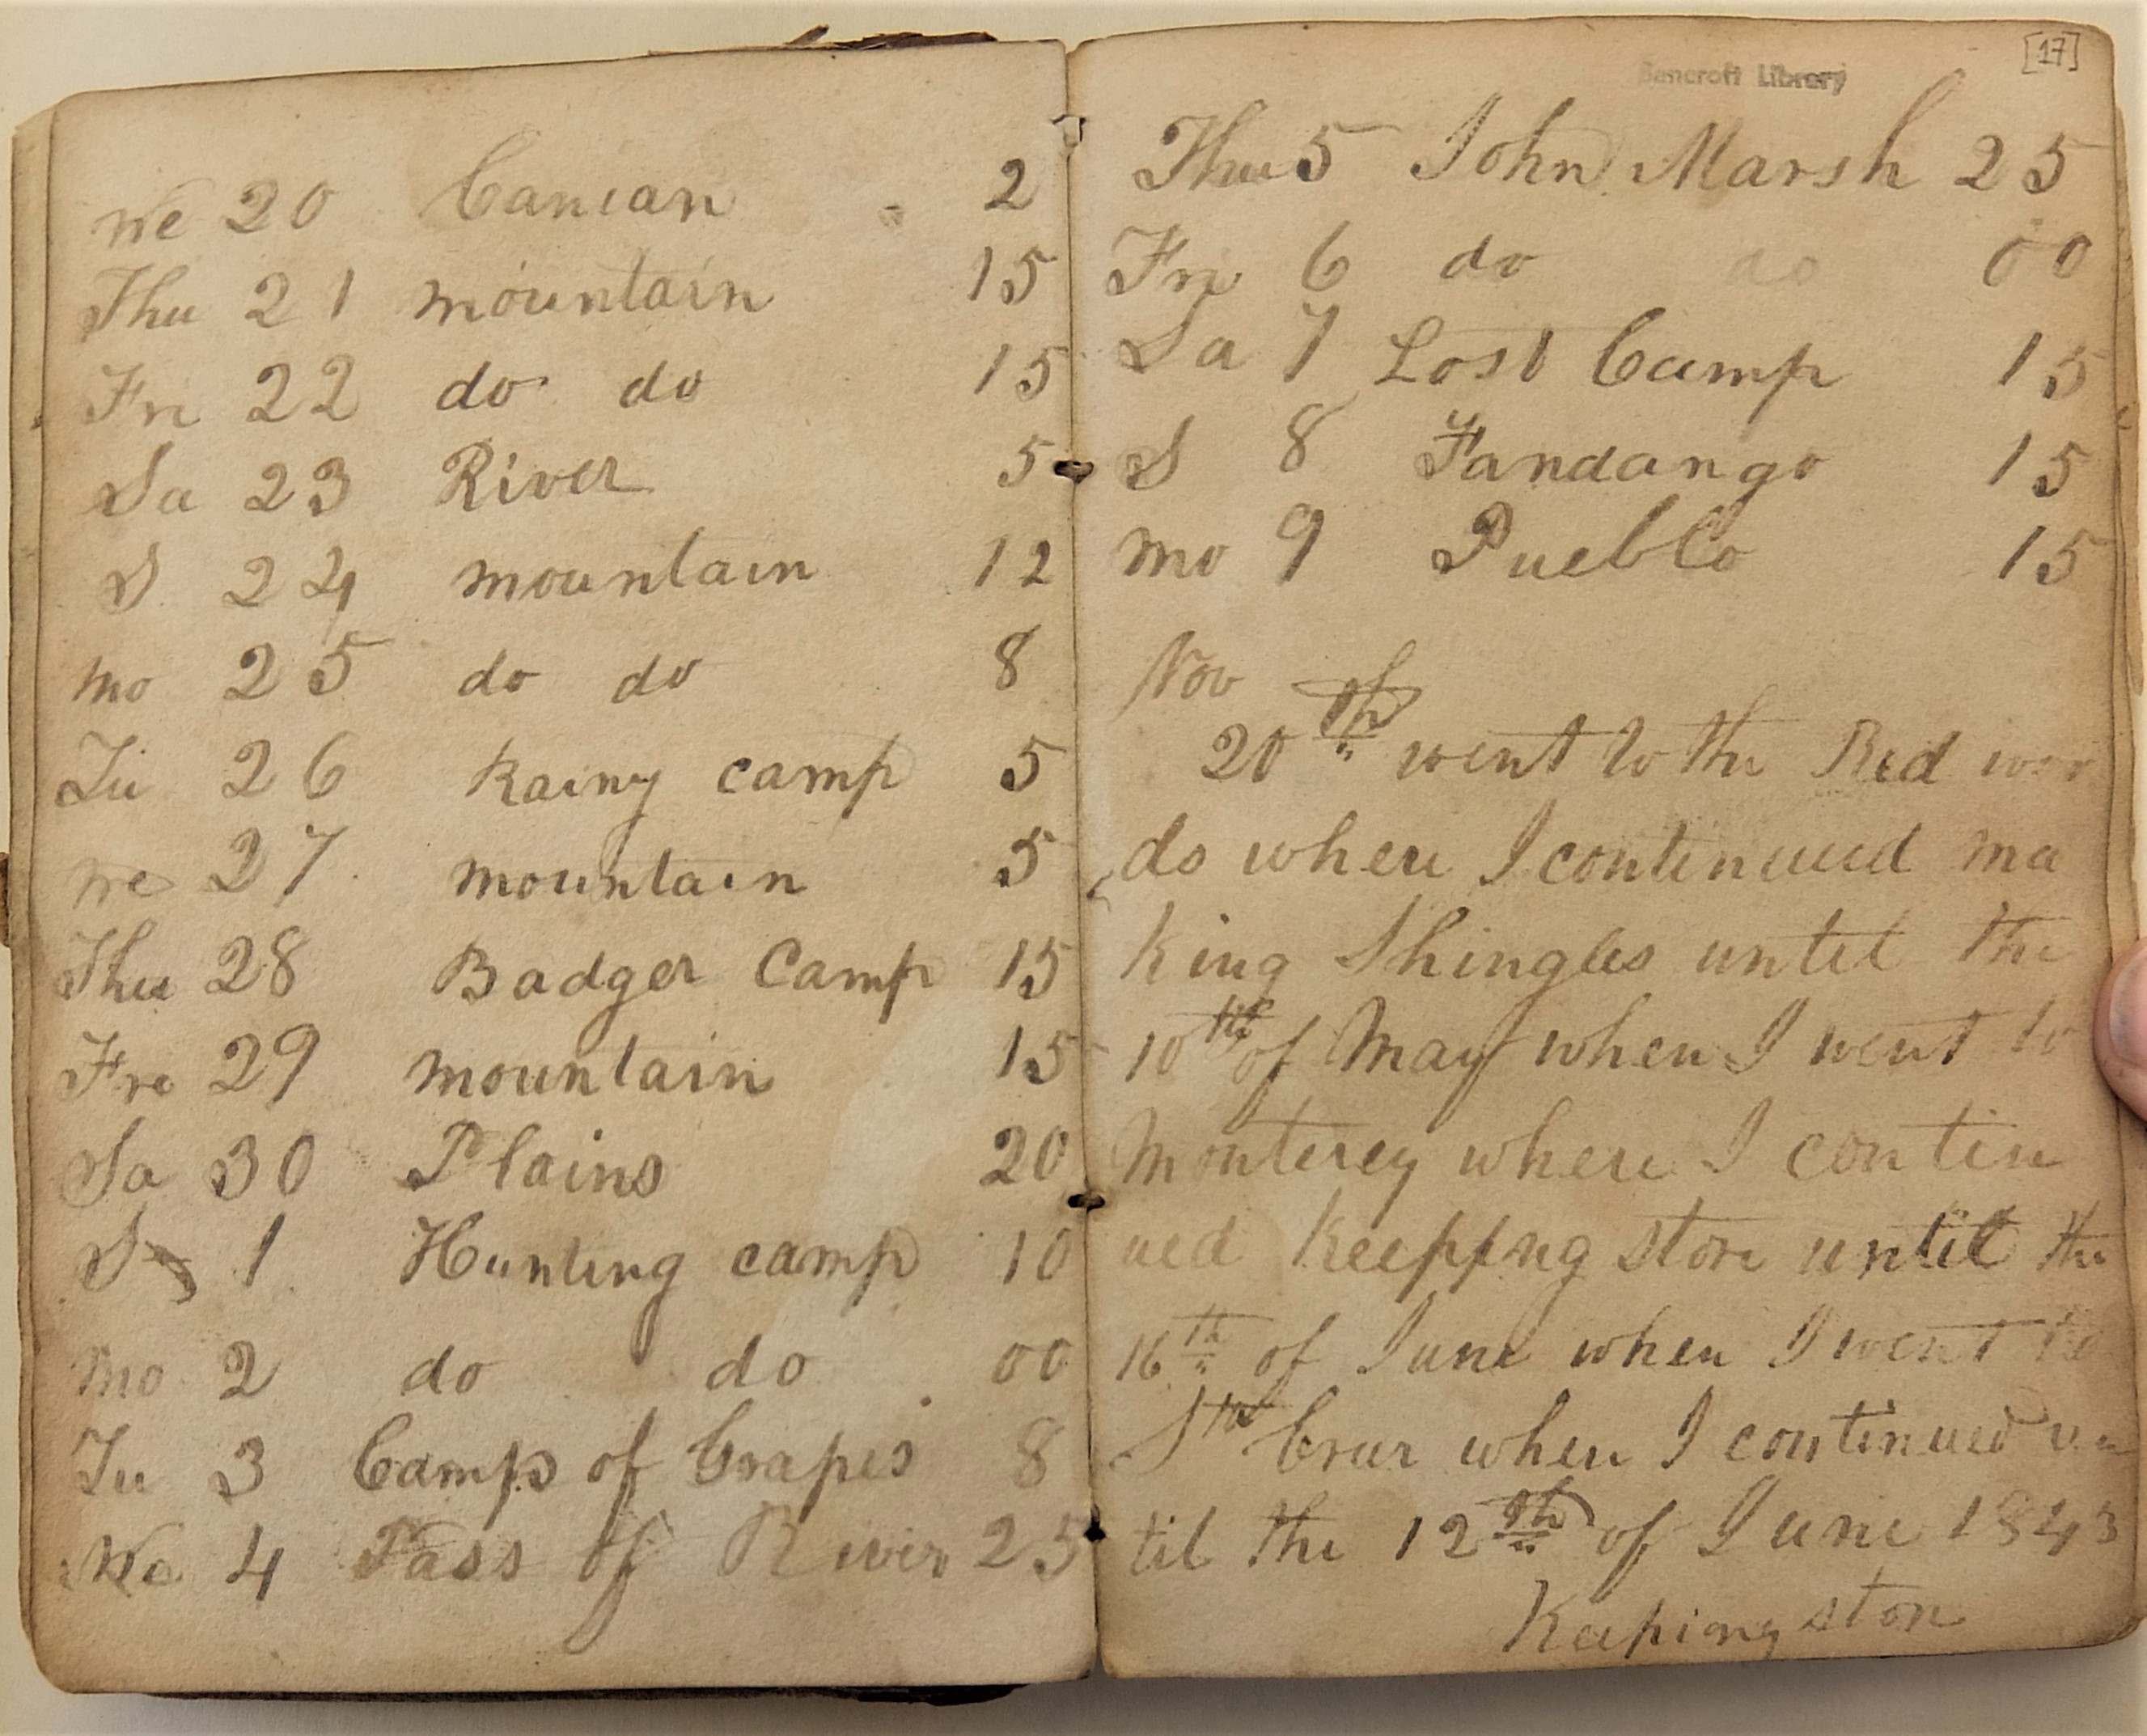 We 20 Canian 2
Thu 21 mountain 15
Fri 22 do do 15
Sa 23 River 5
S 24 mountain 12
mo 25 do do 8
Tu 26 Rainy camp 5
We 27 mountain 5
Thu 28 Badger Camp 15
Fri 29 mountain 15
Sa 30 Plains 20
S 1 Hunting camp 10
mo 2 do do 00
Tu 3 Camp of Grapes 8
We 4 Pass of River 25
[17]
Bancroft Library
Thu 5 John Marsh 25
Fri 6 do do 00
Sa 7 Lost Camp 15
S 8 Fandango 15
mo 9 Pueblo 15
Nov
20th went to the Red wo
do where I continued ma
king Shingles until the
10th of May when I went to
Monterey where I contin
ued Keepping store until the
16th of June when I went to
Sta Crur when I continued un
til the 12th of June 1843
Keeping store